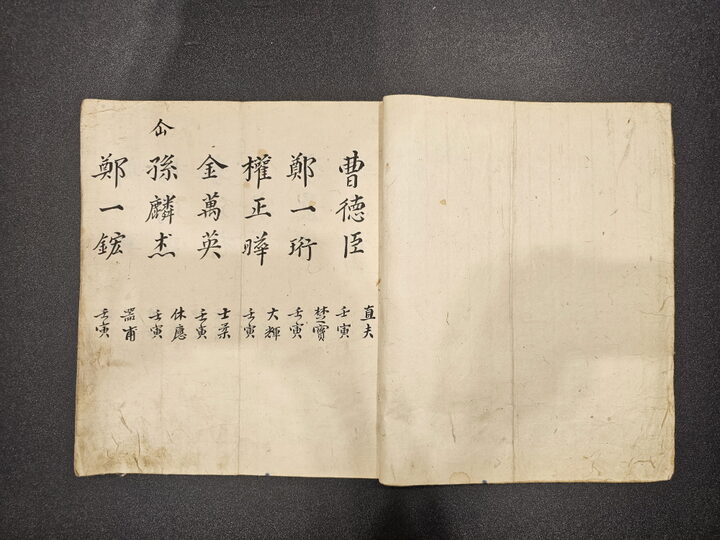 曹德臣
直夫
壬寅
鄭一珩
楚寶
壬寅
權正曄
大輝
壬寅
金萬英
士
壬寅
仚
孫麟杰
休應
壬寅
鄭一鋐
器甫
壬寅